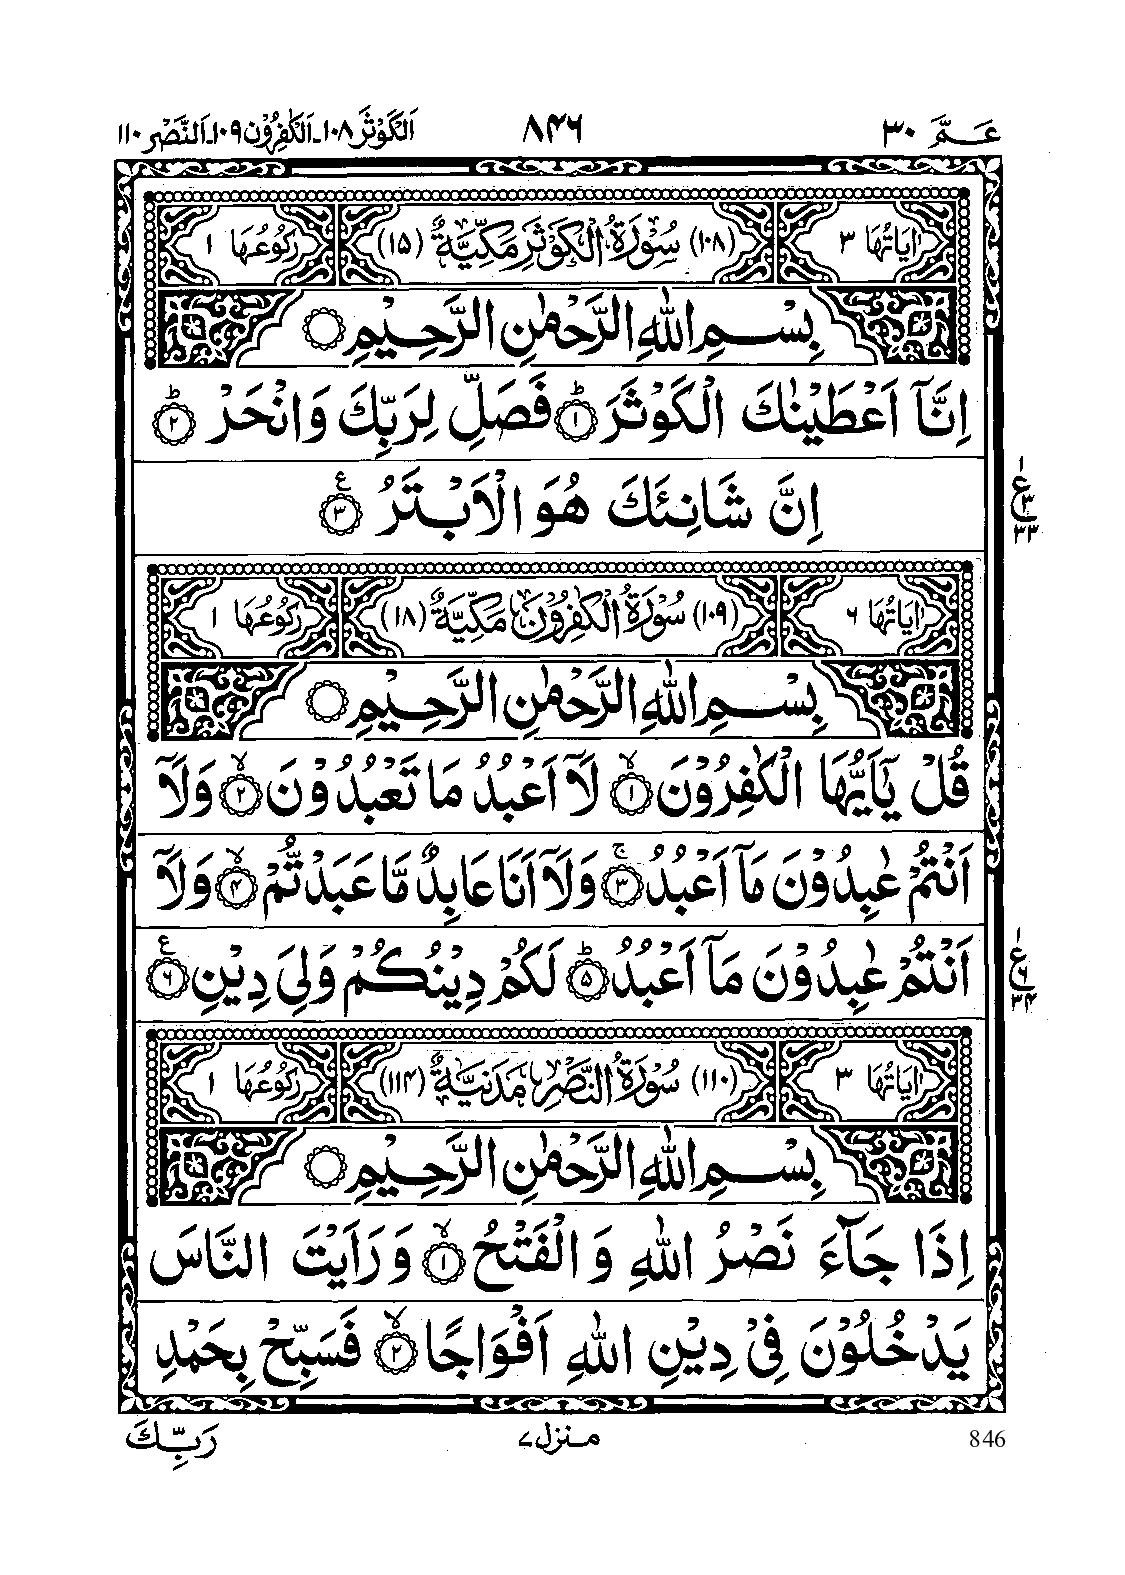 عَـمَّ ۳۰ ۸۴۶ اَلْكَوْثَر ۱۰۸۔اَلْكٰفِرُوْن ۱۰۹۔اَلنَّصْر ۱۱۰
اٰيَاتُهَا ۳ (۱۰۸) سُوْرَةُ الْكَوْثَرِ مَكِّيَّةٌ (۱۵) رَكُوْعُهَا ۱
بِسْمِ اللّٰهِ الرَّحْمٰنِ الرَّحِيْمِ ۝
اِنَّاۤ اَعْطَيْنٰكَ الْكَوْثَرَ ؕ﴿۱﴾ فَصَلِّ لِرَبِّكَ وَانْحَرْ ؕ﴿۲﴾
اِنَّ شَانِئَكَ هُوَ الْاَبْتَرُ ﴿۳﴾ ع
ع ۱ ۳ ۳۳
اٰيَاتُهَا ۶ (۱۰۹) سُوْرَةُ الْكٰفِرُوْنَ مَكِّيَّةٌ (۱۸) رَكُوْعُهَا ۱
بِسْمِ اللّٰهِ الرَّحْمٰنِ الرَّحِيْمِ ۝
قُلْ يٰۤاَيُّهَا الْكٰفِرُوْنَ ۙ﴿۱﴾ لَاۤ اَعْبُدُ مَا تَعْبُدُوْنَ ۙ﴿۲﴾ وَلَاۤ
اَنْتُمْ عٰبِدُوْنَ مَاۤ اَعْبُدُ ۚ﴿۳﴾ وَلَاۤ اَنَا عَابِدٌ مَّا عَبَدْتُّمْ ۙ﴿۴﴾ وَلَاۤ
اَنْتُمْ عٰبِدُوْنَ مَاۤ اَعْبُدُ ؕ﴿۵﴾ لَكُمْ دِيْنُكُمْ وَلِيَ دِيْنِ ﴿۶﴾ ع
ع ۱ ۶ ۳۴
اٰيَاتُهَا ۳ (۱۱۰) سُوْرَةُ النَّصْرِ مَدَنِيَّةٌ (۱۱۴) رَكُوْعُهَا ۱
بِسْمِ اللّٰهِ الرَّحْمٰنِ الرَّحِيْمِ ۝
اِذَا جَآءَ نَصْرُ اللّٰهِ وَالْفَتْحُ ۙ﴿۱﴾ وَرَاَيْتَ النَّاسَ
يَدْخُلُوْنَ فِيْ دِيْنِ اللّٰهِ اَفْوَاجًا ۙ﴿۲﴾ فَسَبِّحْ بِحَمْدِ
846 منزل ۷ رَبِّكَ